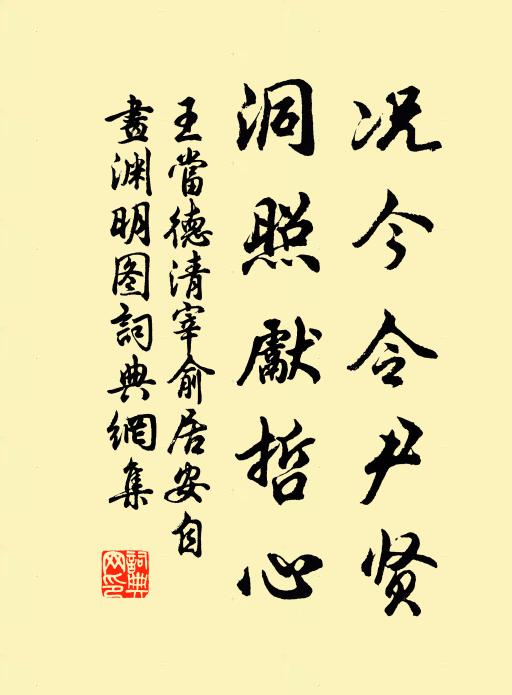 况今令尹贤
洞照献哲心
王當德清宰俞居安自
畫渊明图詞典網集
詞典
网印